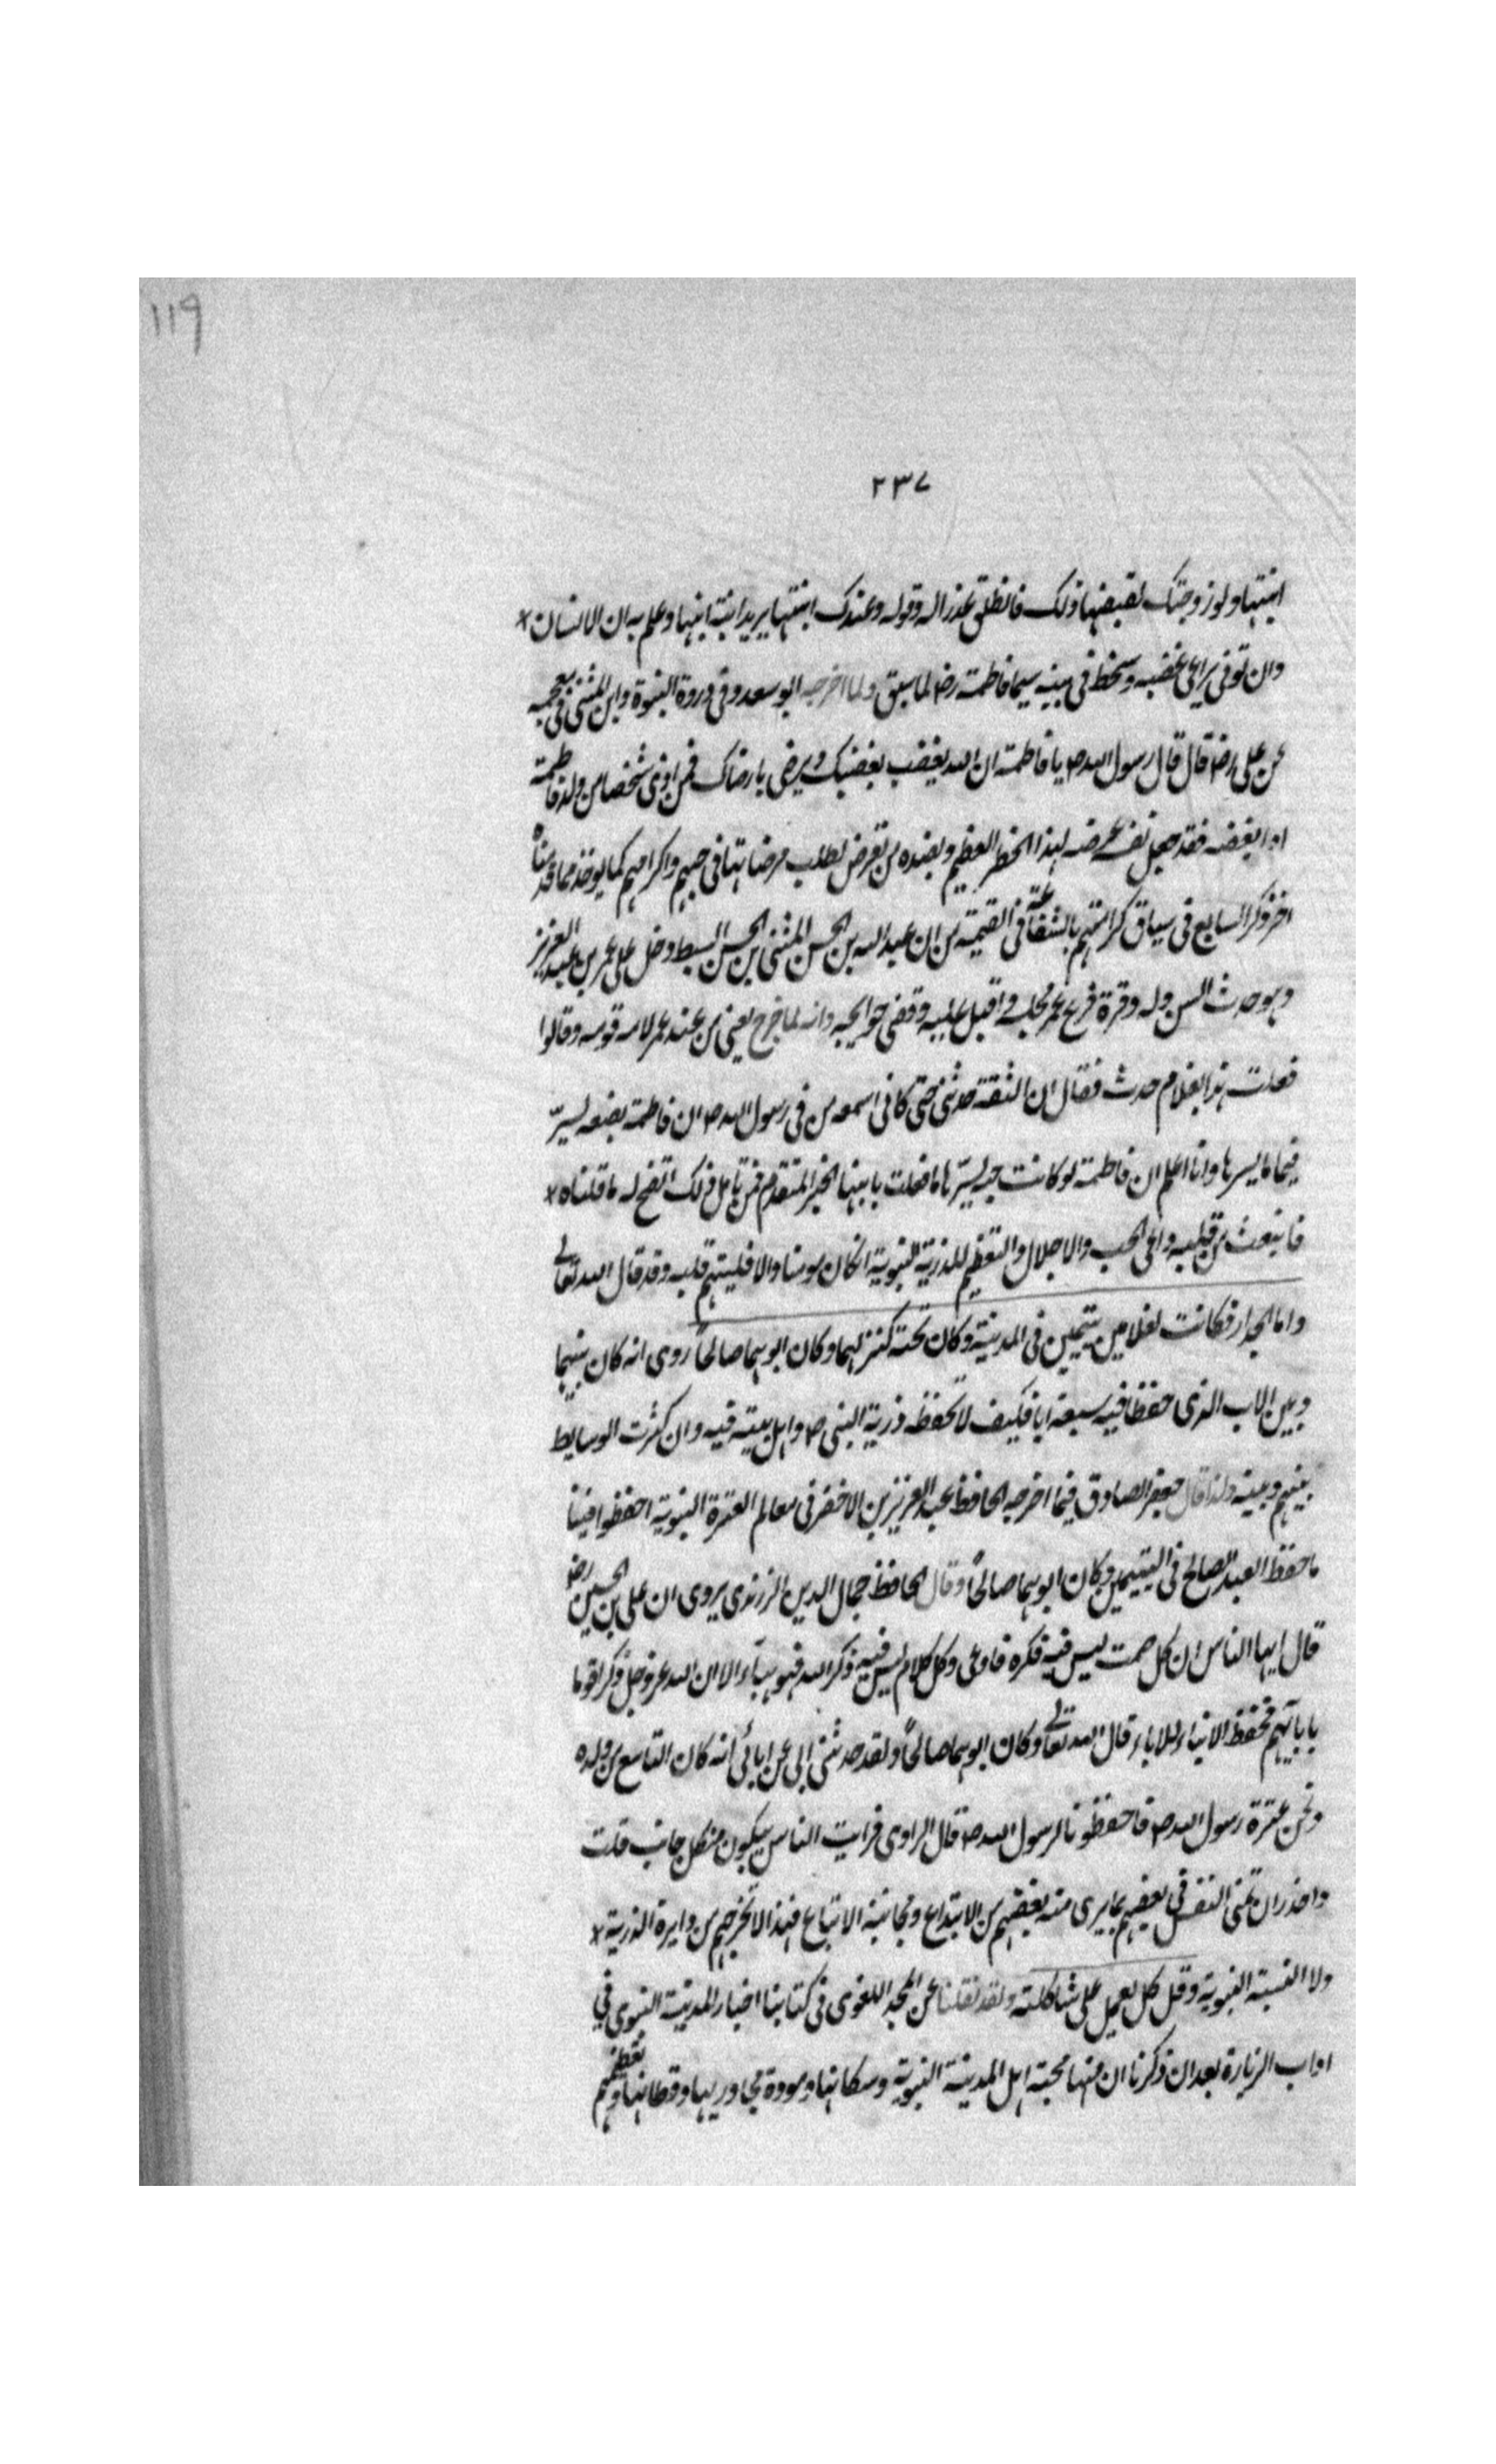 ١١٩
٢٣٧
ابنتها ولو زوجتك لقبضها ذلك فانطلق عذرا له وقوله وعندك ابنتها يريد ابنة ابنها وعلم به ان الانسان *
وان توفى يراعى غضبه وسخط فى بنيه سيما فاطمة رضا لما سبق ولما اخرجه ابو سعد وفى دروة النبوة وابن المثنى فى معجمه
عن على رضا قال قال رسول الله ص يا فاطمة ان الله يغضب بغضبك ويرضى بارضاك فمن اوذى شخصا من ولد فاطمة
او ابغضه فقد جعل نفسه عرضه لهذا الخطر العظيم وبضده من تعرض لطلب مرضاتها فى حبهم واكرامهم كما يوخذ مما قدمناه
اخر ذكر السابع فى سياق كرامتهم بالشفاعة فى القيمة من ان عبد الله بن الحسن المثنى بن الحسن السبط دخل على عمر بن عبد العزيز
وهو حدث السن وله وقرة فرفع عمر مجلسه واقبل عليه وقضى حوايجه وانه لما خرج يعنى من عند عمر لامه قومه وقالوا
فعلت هذا بغلام حدث فقال ان الثقة حدثنى حتى كانى اسمعه من فى رسول الله ص ان فاطمة بضعه ليسرّ
فيما ما يسرها وانا اعلم ان فاطمة لو كانت حيه ليسرّها ما فعلت بابنها الخبر المتقدم فمن تامل ذلك اتضح له ما قلناه *
فانبعث من قلبه داعى الحب والاجلال والتعظيم للذرية النبوية انكان مومنا والا فليتهم قلبه وقد قال الله تعالى
واما الجدار فكانت لغلامين يتيمين فى المدينة وكان تحته كنز لهما وكان ابوهما صالحاً روى انه كان بينهما
وبين الاب الذى حفظا فيه سبعة ابا فكيف لا تحفظ ذرية النبى ص واهل بيته فيه وان كثرت الوسايط
بينهم وبينه ولذا قال جعفر الصادق فيما اخرجه الحافظ عبد العزيز بن الاخضر فى معالم العترة النبوية احفظوا فينا
ما حفظ العبد الصالح فى اليتيمين وكان ابوهما صالحاً وقال الحافظ جمال الدين الزرندى يروى ان على بن الحسين رضا
قال ايها الناس ان كل صمت ليس فيه فكره فاوعى وكل كلام ليس فيه ذكر الله فهو هباً الا ان الله عز وجل ذكر قوما
بابائهم فحفظ الابناء للاباء قال الله تعالى وكان ابوهما صالحاً ولقد حدثنى ابى عن ابائى انه كان التاسع من ولده
ونحن عترة رسول الله ص فاحفظونا لرسول الله ص قال الراوى فرايت الناس يبكون من كل جانب قلت
واحذر ان تمنى النفس فى بعضهم بما يرى منه بعضهم من الابتداع ومجانبة الاتباع فهذا لا تخرجهم من دايرة الذرية *
ولا النسبة النبوية وقل كل يعمل على شاكلته ولقد نقلنا عن المجد اللغوى فى كتابنا اخبار المدينة النبوى فى
اداب الزيارة بعد ان ذكرنا ان منها محبة اهل المدينة النبوية وسكانها ومودة مجاوريها وقطانها وتعظيمهم